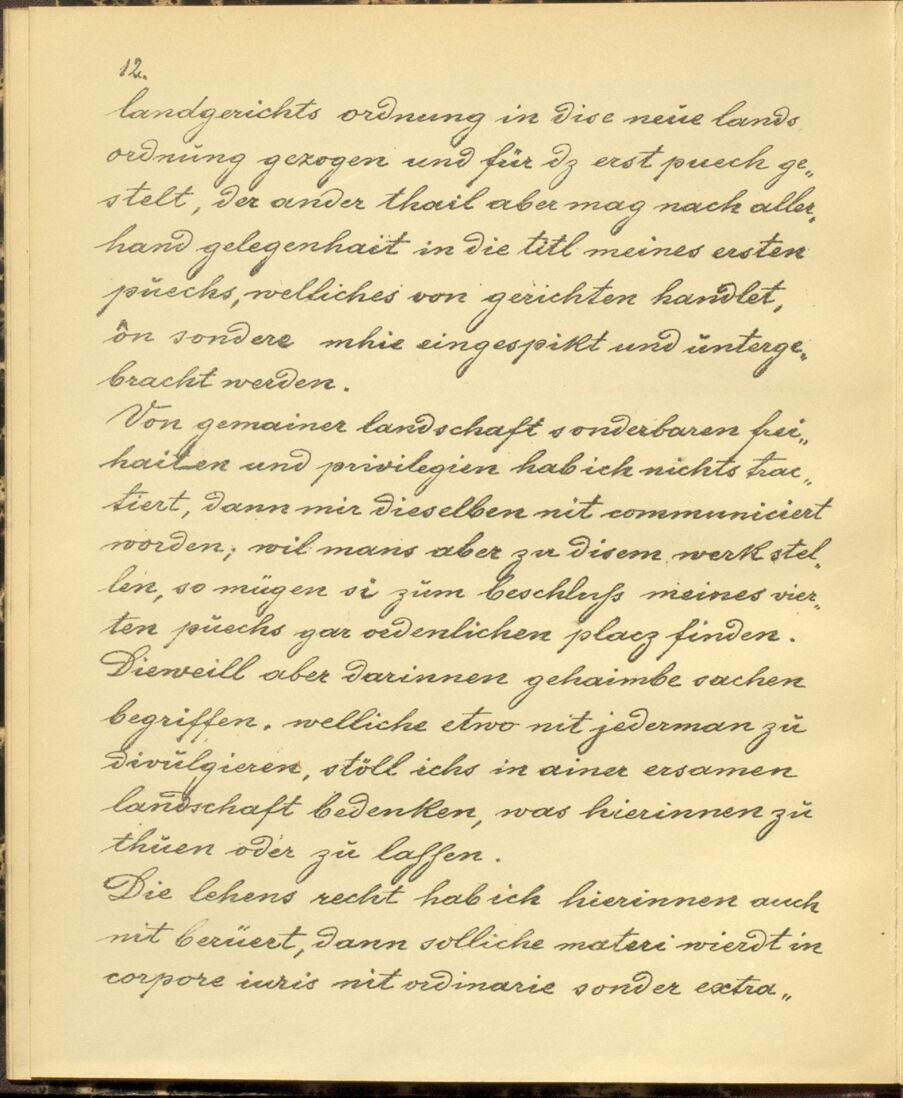 12.
landgerichts ordnung in dise neue lands
ordnung gezogen und für dz erst puech ge„
stelt, der ander thail aber mag nach aller„
hand gelegenhait in die titl meines ersten
püechs, welliches von gerichten handlet,
ôn sondere mhie eingespikt und ünterge„
bracht werden.
Von gemainer landschaft sonderbaren frei„
haiten und privilegien hab ich nichts trac„
tiert, dann mir dieselben nit communiciert
worden; wil mans aber zu disem werk stel„
len, so mügen si züm beschluss meines vier„
ten püechs gar oedenlichen placz finden.
Dieweill aber darinnen gehaimbe sachen
begriffen. welliche etwo nit jederman zü
divülgieren, stöll ichs in ainer ersamen
landschaft bedenken, was hierinnen zü
thüen oder zü lassen.
Die lehens recht hab ich hierinnen auch
nit berüert, dann solliche materi wierdt in
corpore iuris nit ordinarie sonder extra„